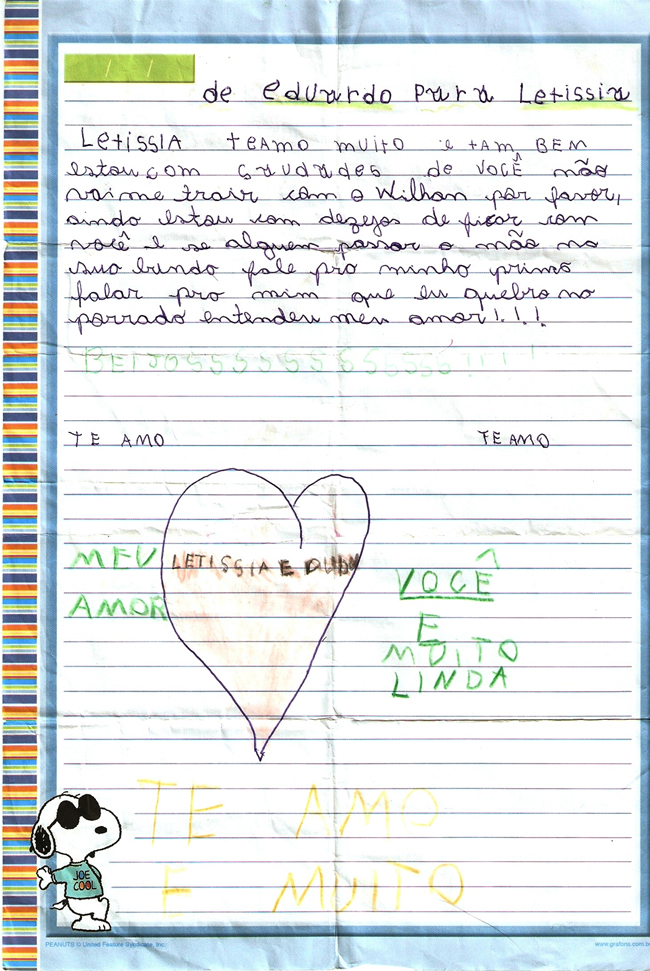 de eduardo Para Letissia
LetissIA teamo muito e tam BEM
estou com saudades de VOCÊ não
vai me trair com o Wilhan por favor,
aindo estou com dezejos de ficar com
você e se alguem passar o mão no
suo bundo fale pro minho primo
falar pro mim que eu quebro no
porrado entendeu meu amor!.!.!
BEIJOSSSSSSSSSSSS!!!!
TE AMO TE AMO
MEU
AMOR
LETISSIA E DUDU
VOCÊ
E
MUITO
LINDA
TE AMO
E MUITO
JOE
COOL
PEANUTS © United Feature Syndicate, Inc.
www.grafons.com.br